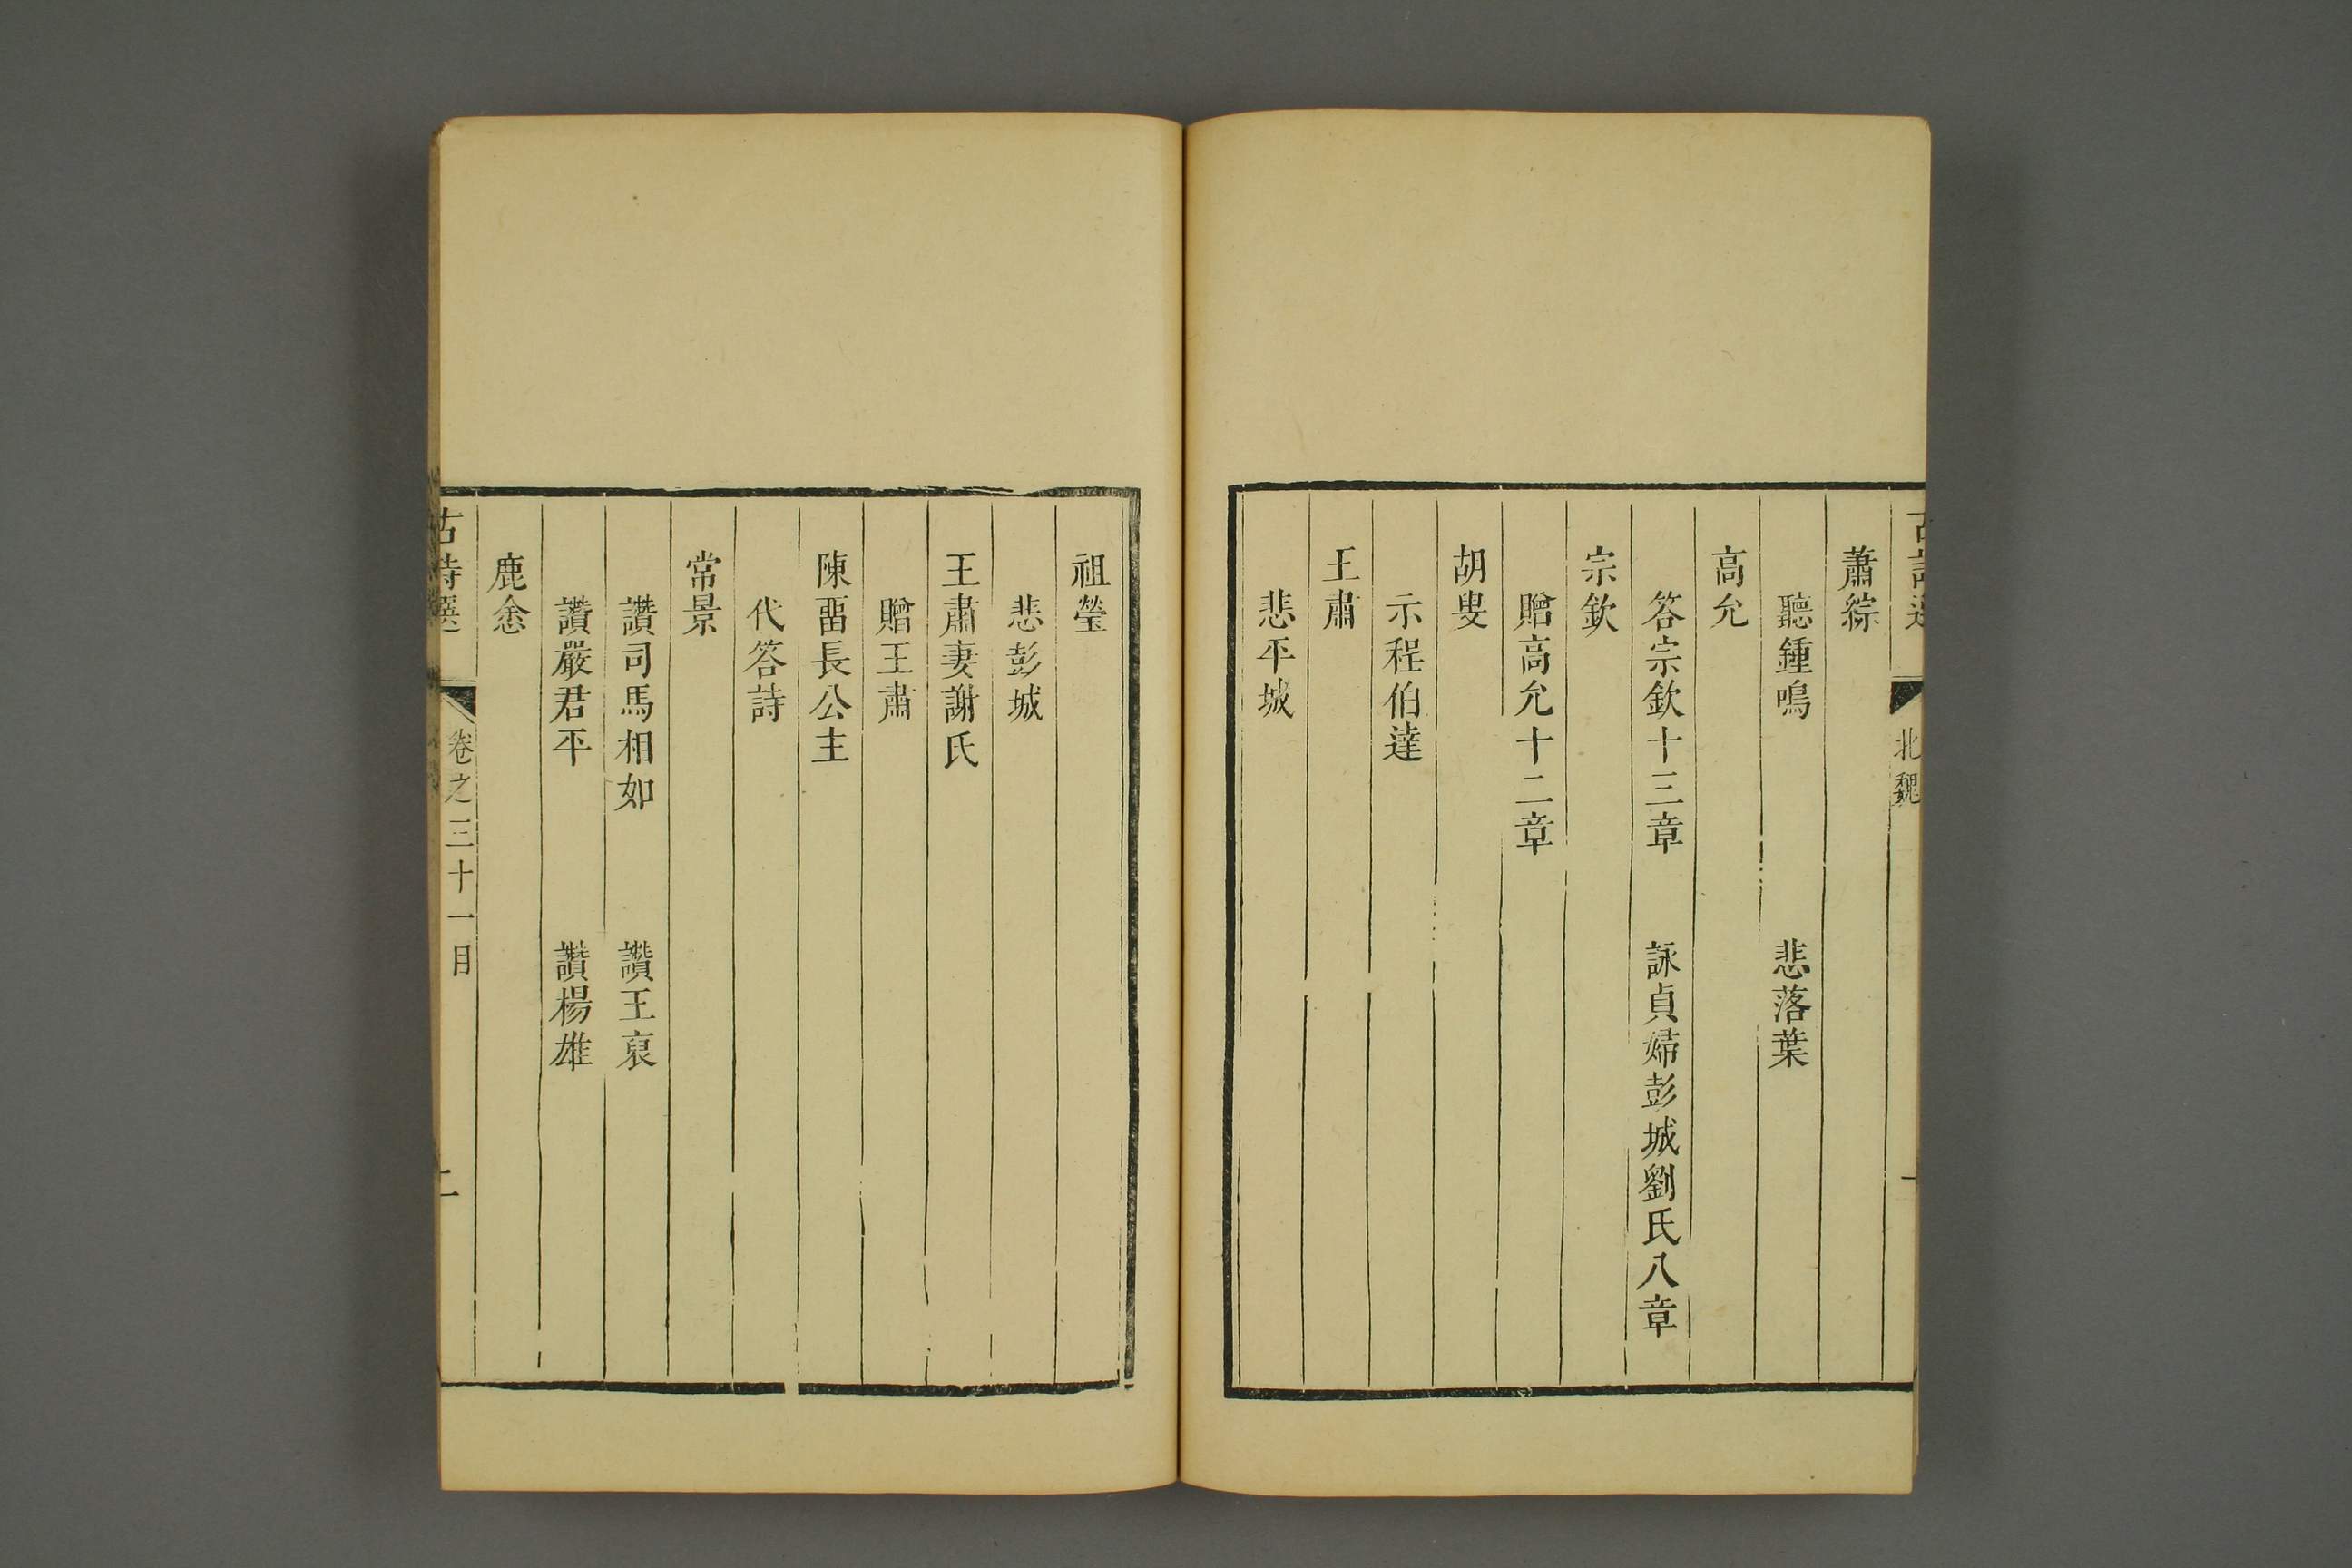 古詩選 北魏 一
蕭綜
聽鍾鳴 悲落葉
高允
答宗欽十三章 詠貞婦彭城劉氏八章
宗欽
贈高允十二章
胡叟
示程伯達
王肅
悲平城
祖瑩
悲彭城
王肅妻謝氏
贈王肅
陳畱長公主
代答詩
常景
讚司馬相如 讚王裒
讚嚴君平 讚楊雄
鹿悆
古詩選 卷之三十一目 二